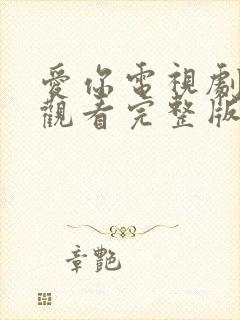 愛你電視劇
觀看完整版
章艷